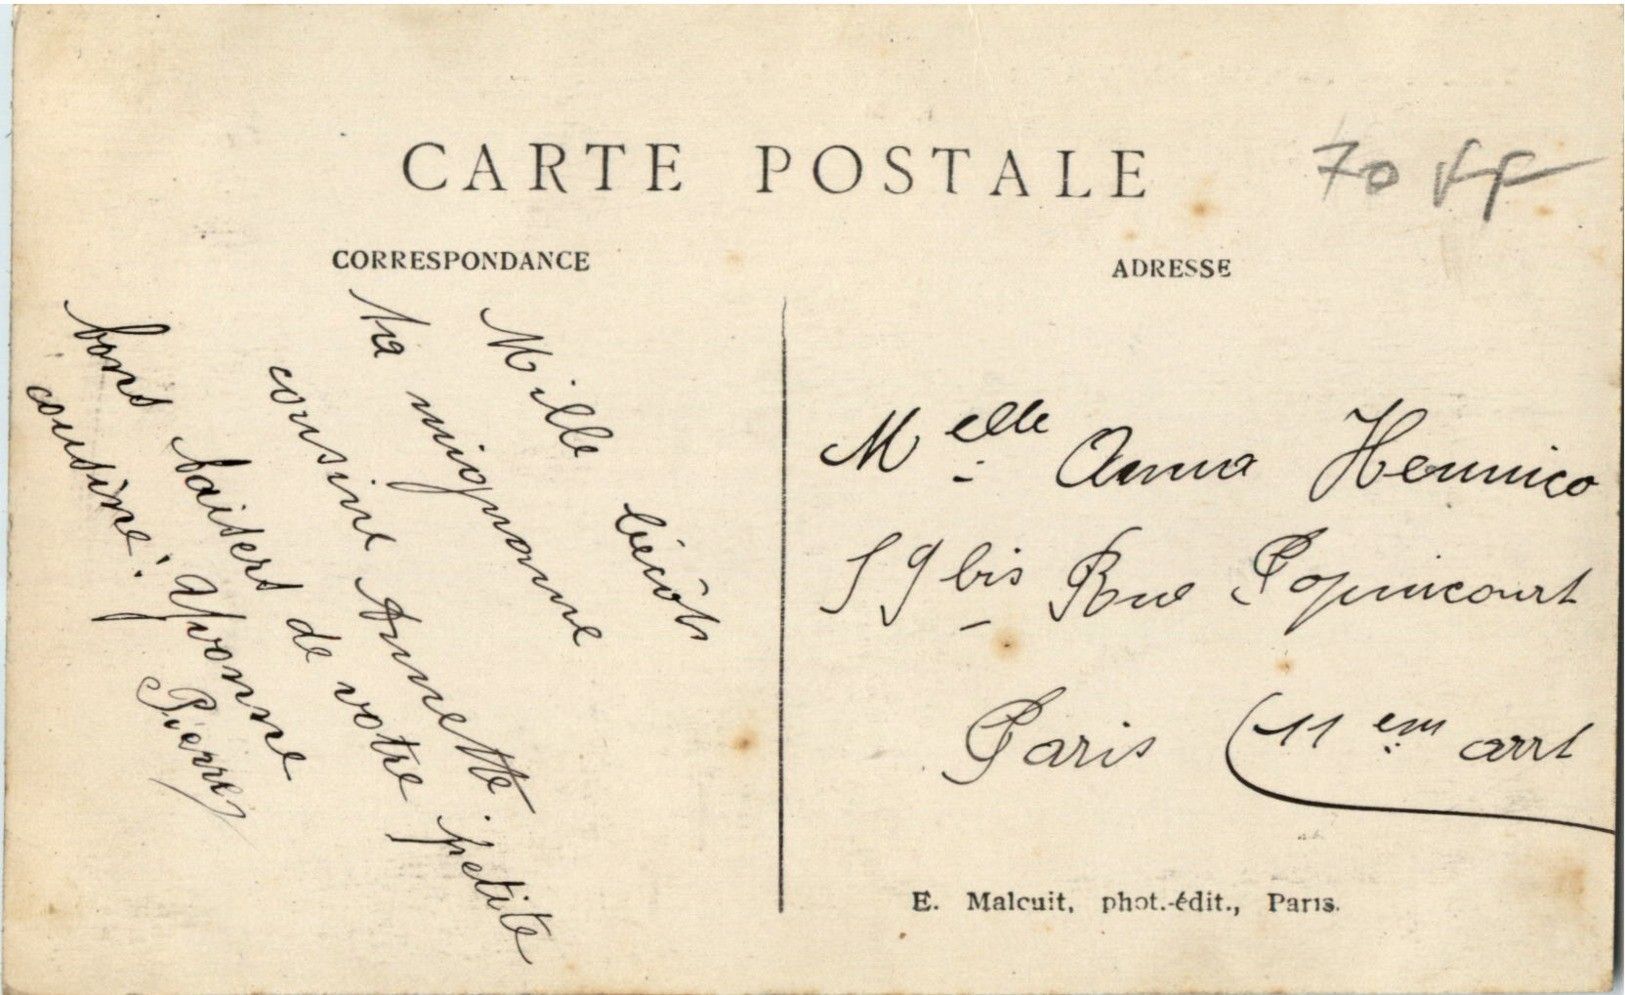 CARTE POSTALE
70 FF
CORRESPONDANCE
ADRESSE
Mille bécots
ta mignonne
cousine Annette.
bons baisers de votre petite
cousine: Yvonne
Pierrey
Melle Anna Hennico
59 bis Rue Popincourt
Paris (11 em arrt
E. Malcuit, phot.-édit., Paris.